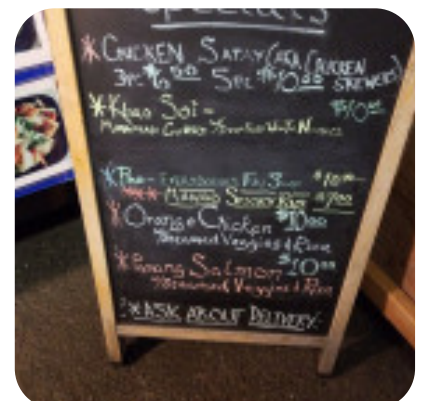 Specials
* CHICKEN SATAY (AKA CHICKEN SKEWERS)
3pc $6.00 5pc $10.00
* Khao Soi -
$10.00
$10.00
MANGO STICKY RICE $7.00
* Orange Chicken $10.00
w/Steamed Veggies & Rice
* Panang Salmon $10.00
w/Steamed Veggies & Rice
* ASK ABOUT DELIVERY